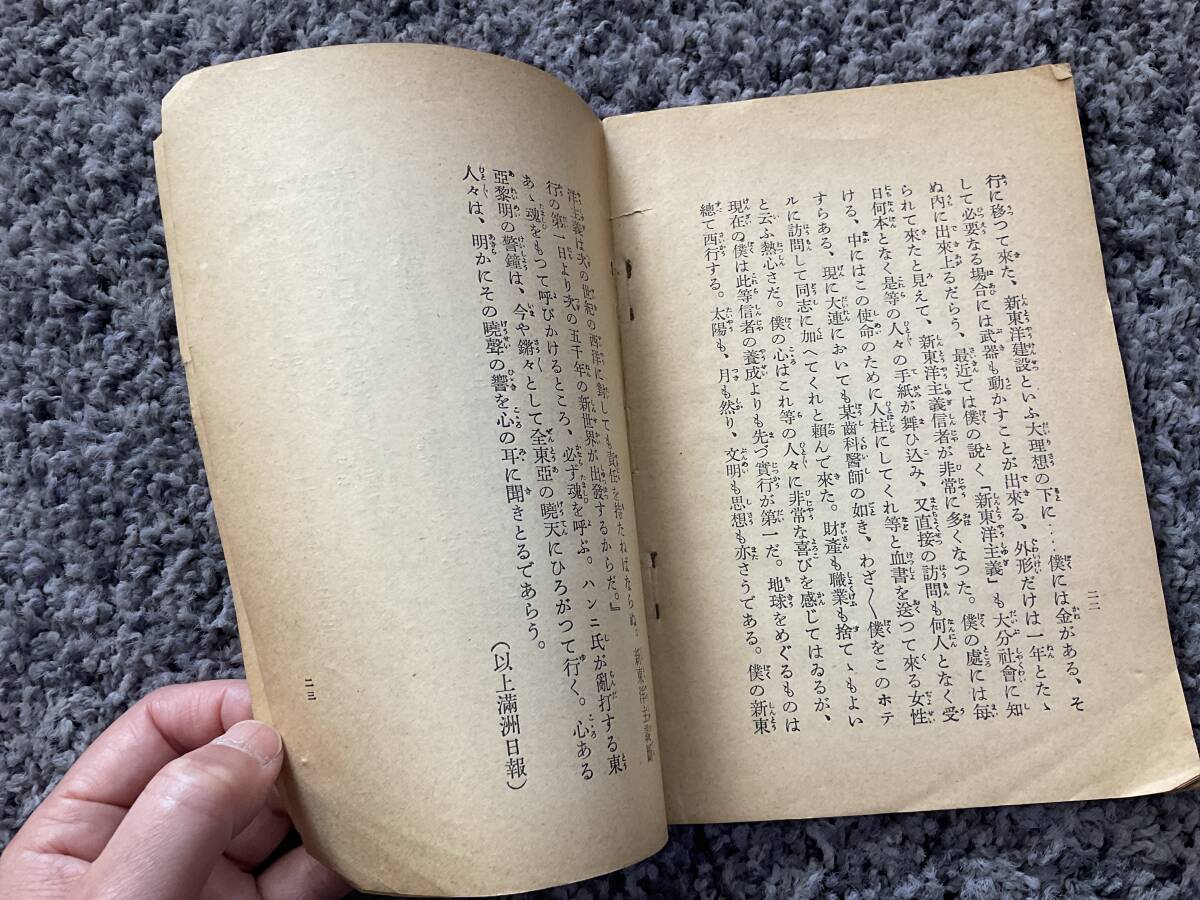 二二
行に移つて來た、新東洋建設といふ大理想の下に‥‥僕には金がある、そ
して必要なる場合には武器も動かすことが出來る、外形だけは一年とたゝ
ぬ内に出來上るだらう、最近では僕の説く「新東洋主義」も大分社會に知
られて來たと見えて、新東洋主義信者が非常に多くなつた。僕の處には毎
日何本となく是等の人々の手紙が舞ひ込み、又直接の訪問も何人となく受
ける、中にはこの使命のために人柱にしてくれ等と血書を送つて來る女性
すらある、現に大連においても某齒科醫師の如き、わざ〳〵僕をこのホテ
ルに訪問して同志に加へてくれと頼んで來た。財產も職業も捨てゝもよい
と云ふ熱心さだ。僕の心はこれ等の人々に非常な喜びを感じてはゐるが、
現在の僕は此等信者の養成よりも先づ實行が第一だ。地球をめぐるものは
總て西行する。太陽も、月も然り、文明も思想も亦さうである。僕の新東
洋主義は次の世紀の西洋に對しても責任を持たねばならぬ。
行の第一日より次の五千年の新世界が出發するからだ。』
あゝ魂をもつて呼びかけるところ、必ず魂を呼ぶ。ハンニ氏が亂打する東
亞黎明の警鐘は、今や鏘々として全東亞の曉天にひろがつて行く。心ある
人々は、明かにその曉聲の響を心の耳に聞きとるであらう。
（以上滿洲日報）
二三